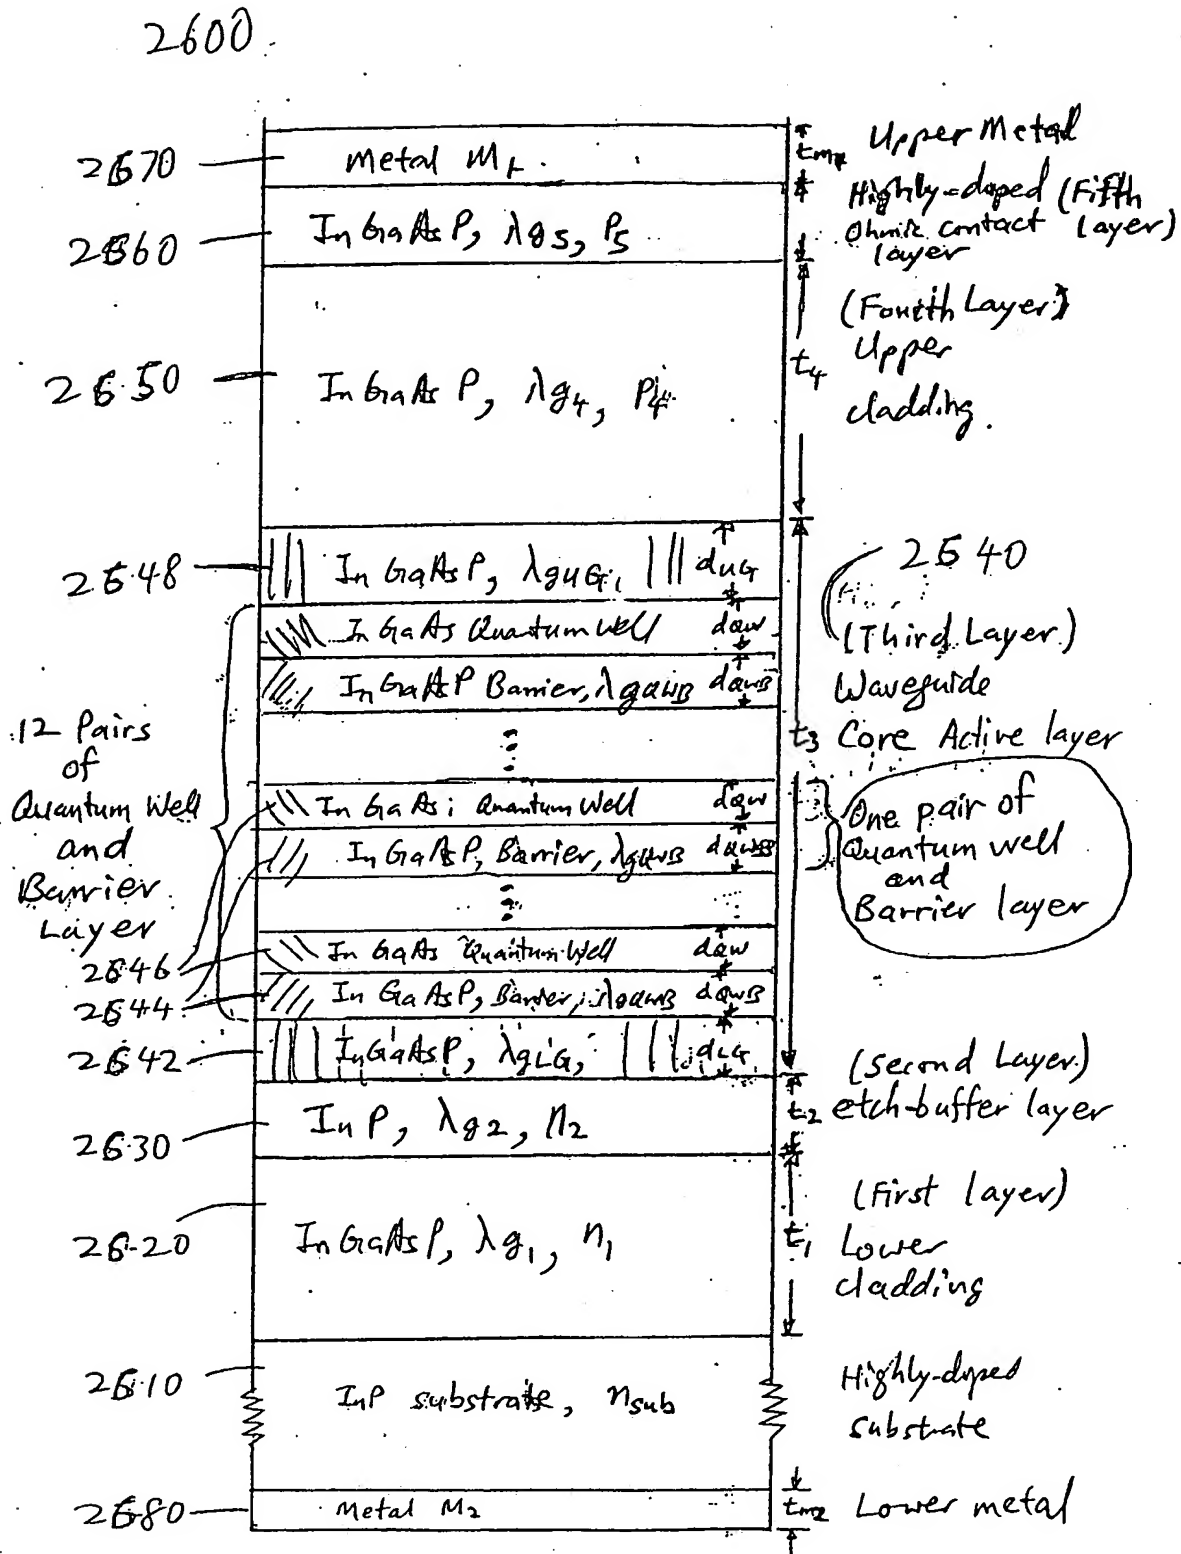 2600
2670
Metal M1
tm1
Upper Metal
2660
InGaAsP, λg5, P5
Highly-doped (Fifth
Ohmic contact layer)
layer
2650
InGaAsP, λg4, P4
t4
(Fourth Layer)
Upper
cladding.
2648
InGaAsP, λgUG,
dUG
2640
InGaAs Quantum Well
dQW
(Third Layer)
InGaAsP Barrier, λgQWB
dQWB
Waveguide
t3
Core Active layer
12 Pairs
of
Quantum Well
and
Barrier
Layer
InGaAs; Quantum Well
dQW
InGaAsP, Barrier, λgQWB
dQWB
One pair of
Quantum well
and
Barrier layer
2646
InGaAs Quantum Well
dQW
2644
InGaAsP, Barrier, λgQWB
dQWB
2642
InGaAsP, λgLG,
dLG
(Second Layer)
t2
etch-buffer layer
2630
InP, λg2, n2
2620
InGaAsP, λg1, n1
t1
(First layer)
Lower
cladding
2610
InP substrate, nsub
Highly-doped
substrate
2680
Metal M2
tm2
Lower metal